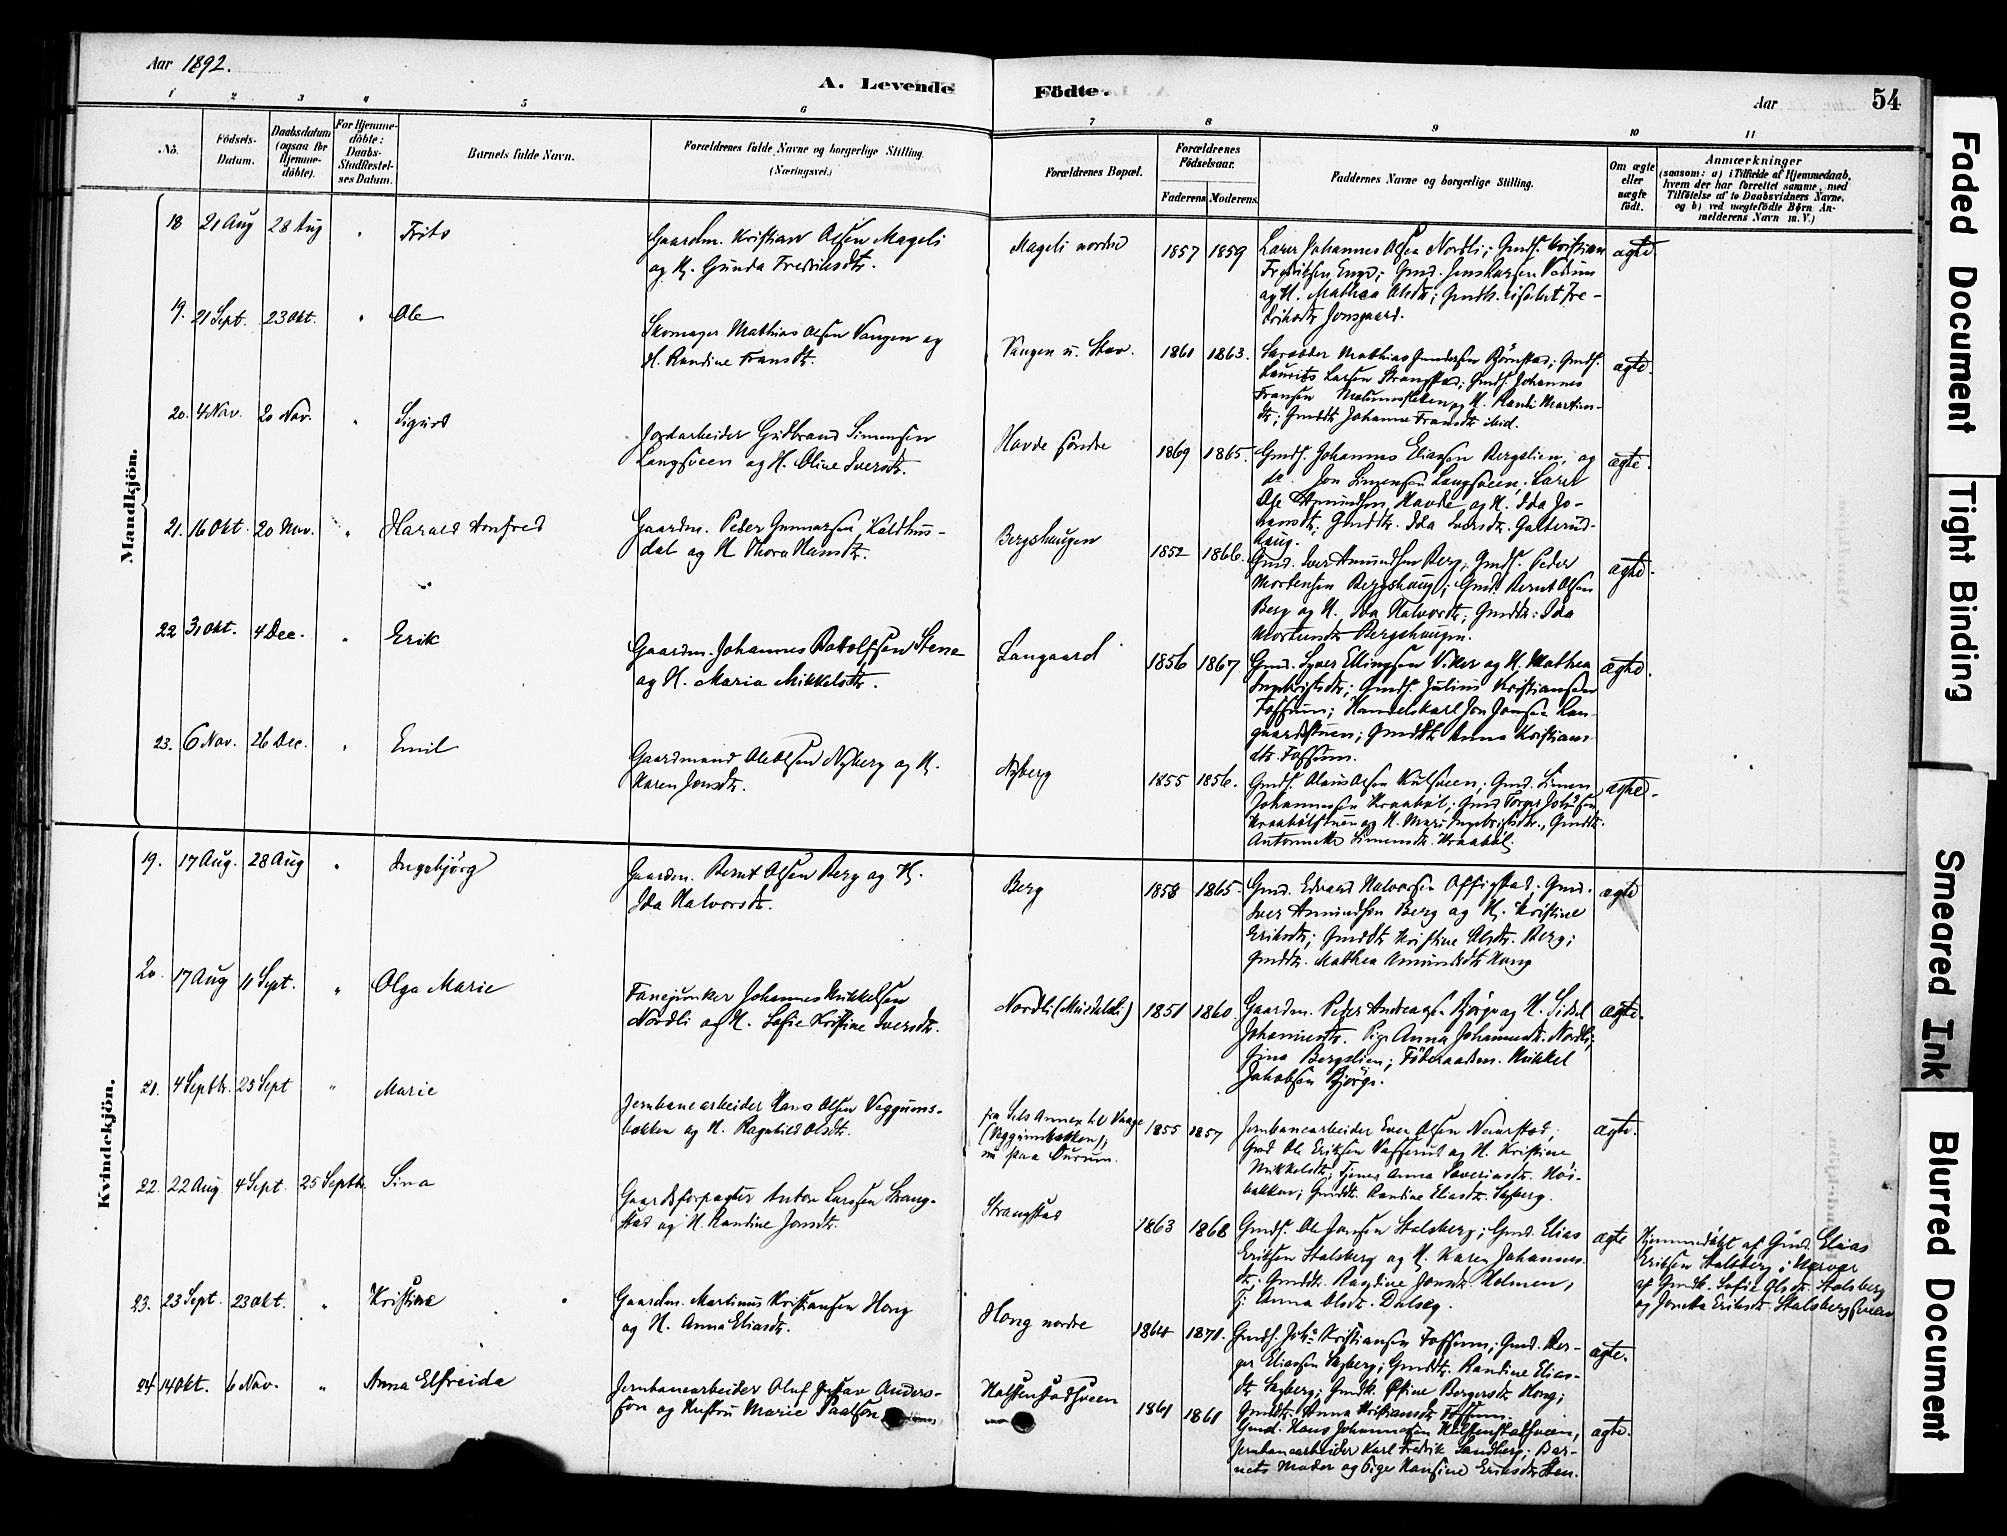 Aar 1892.
A. Levende Födte.
Aar
54
1 2 3 4 5 6 7 8 9 10 11
No.
Födsels-Datum.
Daabsdatum (ogsaa for Hjemme-döbte).
For Hjemme-döbte: Daabs-Stadfæstel-ses Datum.
Barnets fulde Navn.
Forældrenes fulde Navne og borgerlige Stilling.
(Næringsvei.)
Forældrenes Bopæl.
Forældrenes Födselsaar.
Faderens. Moderens.
Faddernes Navne og borgerlige Stilling.
Om ægte eller uægte födt.
Anmærkninger
(saasom: a) i Tilfælde af Hjemmedaab, hvem der har forrettet samme, med Tilföielse af to Daabsvidners Navne. og b) ved uægtefödte Börn Anmelderens Navn m. V.)
Mandkjön.
18 21 Aug 28 Aug " Frits
Gaardm. Kristian Olsen Mageli
og H. Gunda Fredriksdtr.
Mageli nordre 1857 1859
Lærer Johannes Olsen Nordli; Gmds. Kristian
Fredriksen Enge; Gmd. Jens Larsen
og H. Mathea Olsdtr; Gmdk. Lisabet Fre-
driksdtr Jonsgaard.
ægte.
19. 21 Sept. 23 Okt. " Ole
Skomager Mathias Olsen Vangen og
H. Randine Fransdtr.
Vangen u. Stav. 1861 1863.
Mathias Gundersen Björnstad; Gmds.
Laurits Larsen Strangstad; Gmds. Johannes
Fransen og H. Randi Martins-
dtr; Gmddtr Johanne Fransdtr ibid.
ægte.
20. 4 Nov. 20 Nov. " Sigurd
Jordarbeider Gudbrand Simensen
Langsveen og H. Oline Iversdtr.
Havde söndre 1869 1865.
Gmds. Johannes Eliassen Bergslien, og
do. Jon Simensen Langsveen. Lærer
Ole Amundsen Havde og H. Ida Jo-
hansdtr; Gmddtr. Ida Iversdtr. Galterud-
haug.
ægte.
21. 16 Okt. 20 Nov. " Harald Arnfred
Gaardm. Peder Gunnarsen Kaldhus-
dal og H Thora Hansdtr.
Bergshaugen 1852 1866.
Gmd. Iver Amundsen Berg; Gmds. Peder
Mortensen Bergshaug; Gmd. Bernt Olsen
Berg og H. Ida Halvorsdtr; Gmddtr. Ida
Mortensdtr Bergshaugen.
ægte.
22 31 Okt. 4 Dec. " Erik
Gaardm. Johannes Botolfsen Stene
og H. Maria Mikkelsdtr.
Langaard 1856 1867
Gmd. Syver Ellingsen Viker og H. Mathea
Ingebrigtsdtr; Gmds. Julius Kristiansen
Fossum; Handelskarl Jon Jonsen Lan-
gaardstuen; Gmddtr Anna Kristians-
dtr. Fossum.
ægte.
23. 6 Nov. 26 Dec. " Emil
Gaardmand Ole Olsen Nyberg og H.
Karen Jonsdtr.
Nyberg 1855 1856.
Gmds. Olaus Olsen Kulsveen; Gmd. Simen
Johannessen Kraaböl; Gmd Torger Johs sen
Kraabölstuen og H. Mari Ingebrigtsdtr., Gmddtr.
Antonnette Simensdtr. Kraaböl.
ægte.
Kvindekjön.
19. 17 Aug. 28 Aug " Ingebjörg
Gaardm. Bernt Olsen Berg og H.
Ida Halvorsdtr.
Berg 1858 1865.
Gmd. Edvard Halvorsen Offigstad. Gmd.
Iver Amundsen Berg og H. Kristine
Eriksdtr; Gmddtr Kristine Olsdtr. Berg;
Gmddtr. Mathea Amundsdtr Haug
ægte
20. 17 Aug 11 Sept. " Olga Marie
Fanejunker Johannes Mikkelsen
Nordli og H. Sofie Kristine Iversdtr.
Nordli 1851 1860.
Gaardm. Peter Andreasen Björge og H. Sidsel
Johannesdtr. Pige Anna Johannesdtr. Nordli;
Gina Bergslien; Föderaadsm. Mikkel
Jakobsen Björge.
ægte.
21. 4 Septbr. 25 Sept " Marie
Jernbanearbeider Hans Olsen Veggums-
bakken og H. Ragnhild Olsdtr.
fra Sels Annex til Vaage
(Veggumsbakken),
nu paa Ourum.
1855 1857
Jernbanearbeider Even Olsen
Gmd Ole Eriksen og H. Kristine
Mikkelsdtr; Tjener Anna Severinsdtr.
bakken; Gmddtr. Randine Eliasdtr. Sagberg.
ægte.
22. 22 Aug. 4 Sept. 25 Septbr. Sina
Gaardsforpagter Anton Larssen Strang-
stad og H. Randine Jonsdtr.
Strangstad 1863 1868
Gmds. Ole Jonsen Stalsberg; Gmd. Elias
Eriksen Stalsberg og H. Karen Johannes-
dtr; Gmddtr. Randine Jonsdtr. Holmen,
Tj. Anna Olsdtr. Dalseg.
ægte
Hjemmedöbt af Gmd. Elias
Eriksen Stalsberg i Nærvær
af Gmdk. Sofie Olsdtr. Stalsberg
og Eriksdtr. Stalsbergsveen
23. 23 Sept. 23 Okt. " Kristine
Gaardm. Martinus Kristiansen Hong
og H. Anna Eliasdtr.
Hong nordre 1864 1871.
Gmds. Johs Kristiansen Fossum; Gmd. Ber-
ger Eliassen Sagberg; Gmddtr. Randine Elias-
dtr Sagberg; Gmdk. Bergersdtr Hong;
Gmddtr. Anna Kristiansdtr Fossum.
ægte.
24 14 Okt. 6 Nov. " Anna Elfreida
Jernbanearbeider Oluf Gustav Anders-
son og Hustru Marie Paalsen
Halstenstadsveen 1861 1861
Gmd. Hans Johannessen Halstenstadsveen,
Jernbanearbeider Karl Fredrik Sandberg; Bar-
nets Moder og Pige Hansine Eriksdtr Sten.
ægte.
Faded Document
Tight Binding
Smeared Ink
Blurred Document